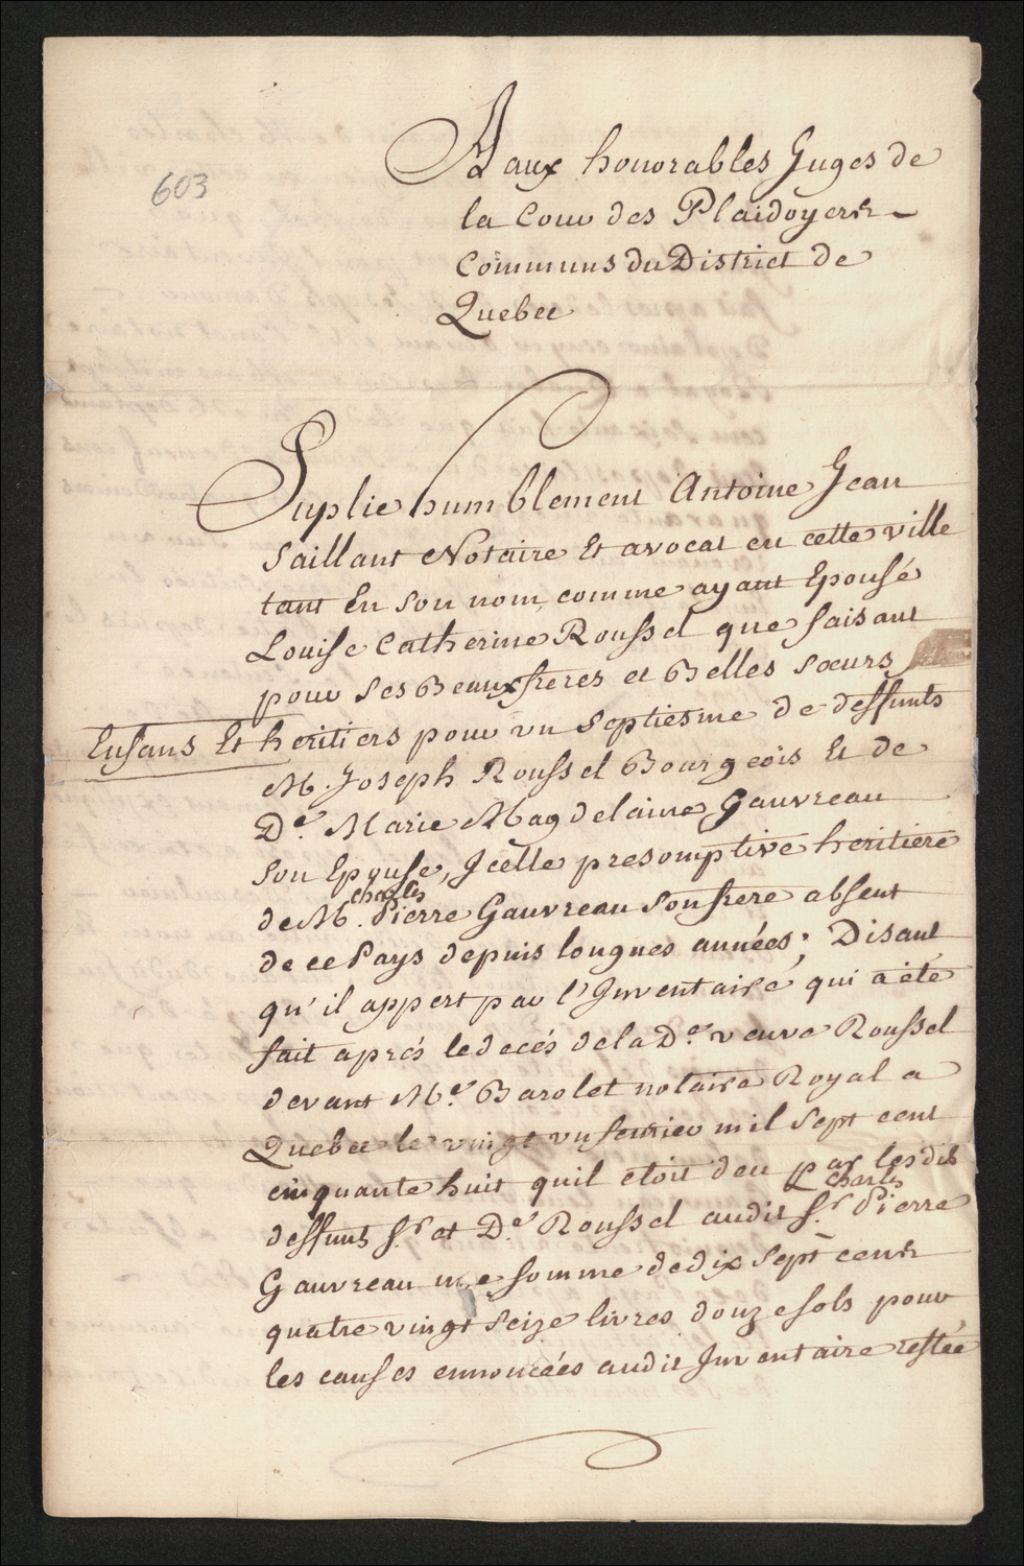 603
A aux honorables Juges de
la Cour des Plaidoyers
Communs du District de
Quebec
Suplie humblement Antoine Jean
Saillant Notaire Et avocat en cette ville
tant En son nom, comme ayant Epousé
Louise Catherine Roussel que faisant
pour ses Beaux freres et Belles sœurs
Enfans Et heritiers pour un septiesme de deffunts
M. Joseph Roussel Bourgeois Et de
De. Marie Magdelaine Gauvreau
son Epouse, Jcelle presomptive heritiere
charles
de M. Pierre Gauvreau son frere absent
de ce Pays depuis longues années; Disant
qu'il appert par l'Inventaire qui a été
fait aprés le decés de la De. veuve Roussel
devant Me. Barolet notaire Royal a
Quebec le vingt un fevrier mil sept cent
cinquante huit quil etoit deu par les dits
charles
deffunts Sr. et De. Roussel audit Sr. Pierre
Gauvreau une somme de dix sept cents
quatre vingt seize livres douze sols pour
les causes ennoncées audit Inventaire restée